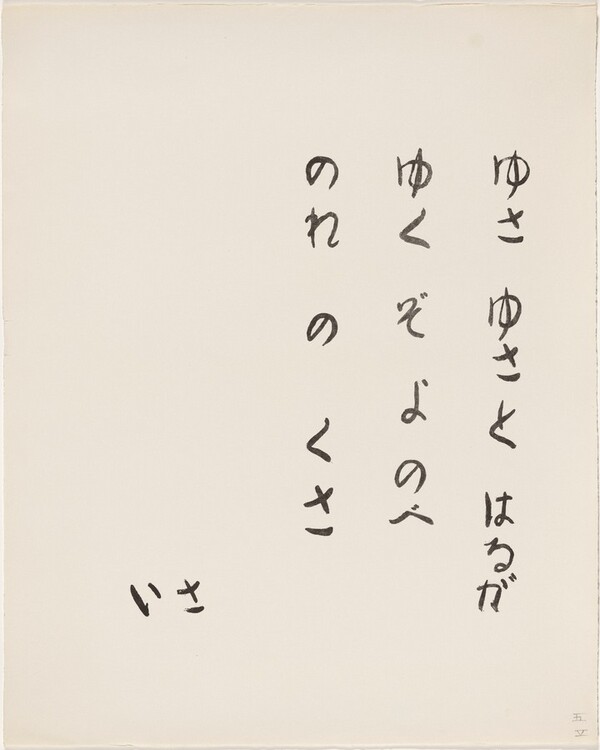 ゆさ ゆさと はるが
ゆく ぞ よ のべ
のれ の くさ
いさ
五
V